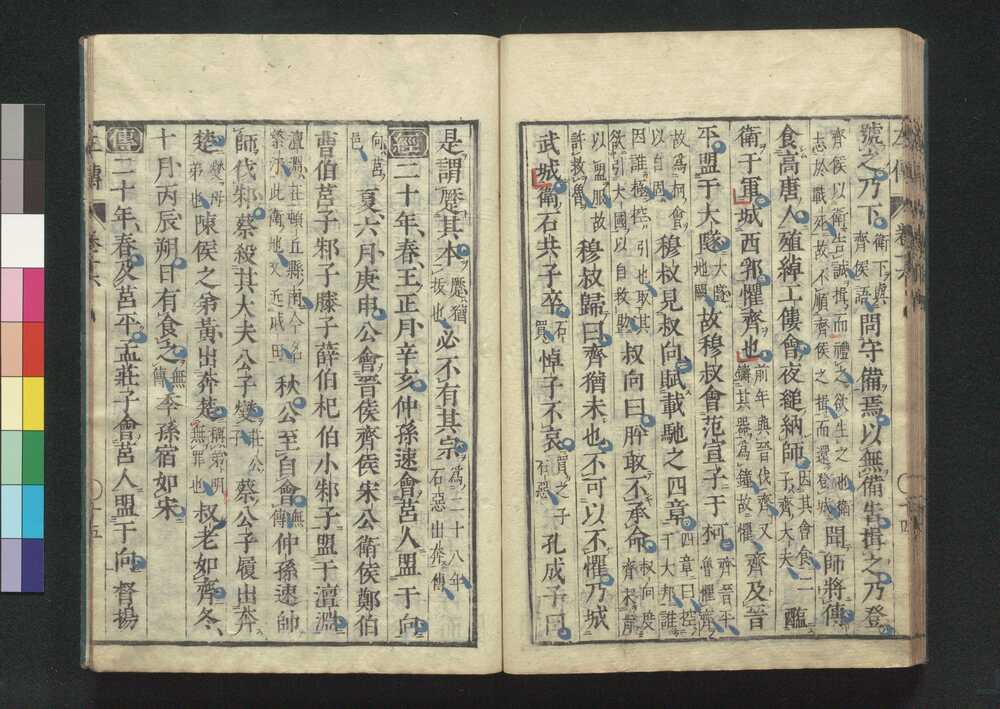 號之乃下衛下與齊侯語問守備焉以無備告揖之乃登
齊侯以衛告誠揖而禮之欲生之也衛志於戰死故不順齊侯之揖而還登城聞師將傅
食高唐人殖綽工僂會夜縋納師因其會食二子齊大夫醢
衛于軍城西郛懼齊也前年與晉伐齊又鑄其器爲鐘故懼齊及晉
平盟于大隧大隧地闕故穆叔會范宣子于柯齊晉平魯懼齊
故爲柯會以自固穆叔見叔向賦載馳之四章四章曰控于大邦誰
因誰極控引也取其欲引大國以自救助叔向曰肸敢不承命叔向度齊未肯
以盟服故許救魯穆叔歸曰齊猶未也不可以不懼乃城
武城衛石共子卒石買悼子不哀買之子石惡孔成子曰
是謂蹷其本蹷猶拔也必不有其宗爲二十八年石惡出奔傳
經二十年春王正月辛亥仲孫速會莒人盟于向
向莒邑夏六月庚申公會晉侯齊侯宋公衛侯鄭伯
曹伯莒子邾子滕子薛伯杞伯小邾子盟于澶淵
澶淵在頓丘縣南今名繁汙此衛地又近戚田秋公至自會無傳仲孫速帥
師伐邾蔡殺其大夫公子燮莊公子蔡公子履出奔
楚燮母弟也陳侯之弟黃出奔楚稱弟明無罪也叔老如齊冬
十月丙辰朔日有食之無傳季孫宿如宋
傳二十年春及莒平孟莊子會莒人盟于向督揚